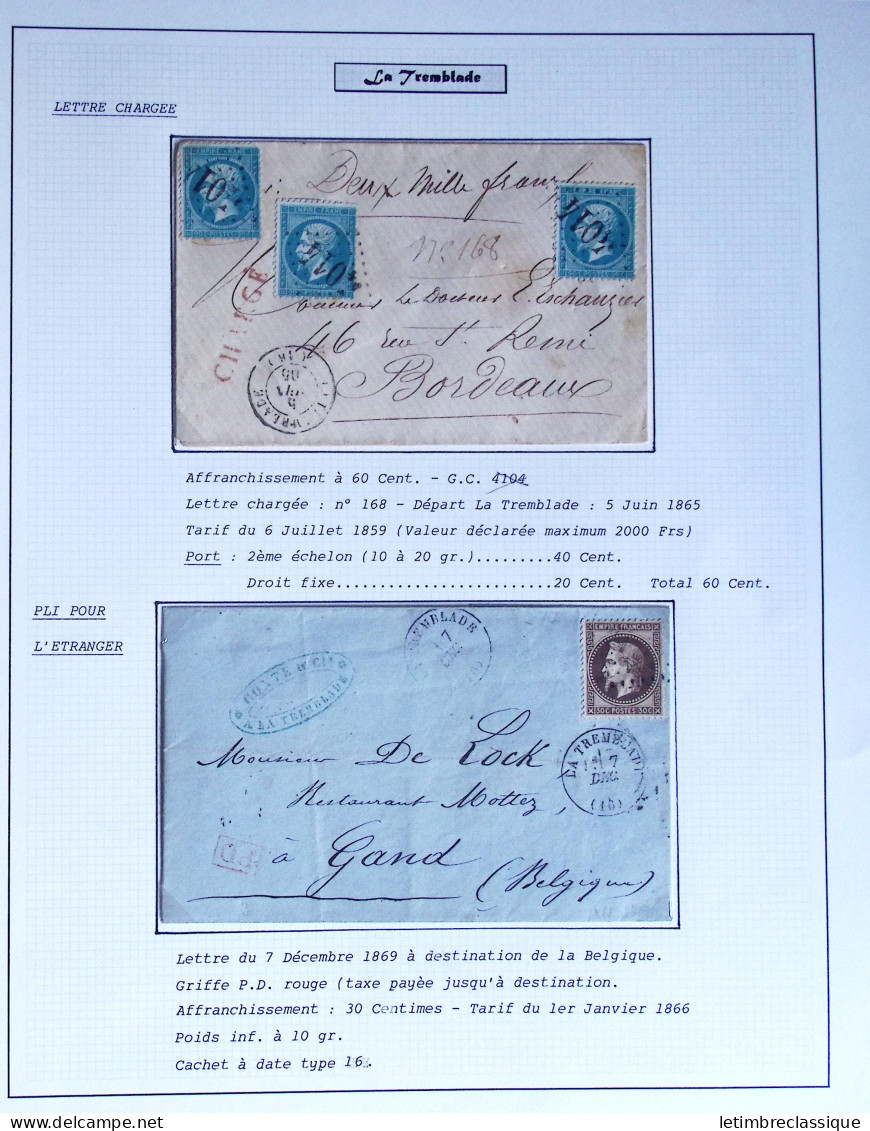 La Tremblade
LETTRE CHARGEE
Deux Mille francs
EMPIRE FRANC
EMPIRE FRANC
4014
4014
N° 168
CHARGE
Docteur E. Eschauzier
46 rue St Remi
Bordeaux
5
65
Affranchissement à 60 Cent. - G.C. 4104
Lettre chargée : n° 168 - Départ La Tremblade : 5 Juin 1865
Tarif du 6 Juillet 1859 (Valeur déclarée maximum 2000 Frs)
Port : 2ème échelon (10 à 20 gr.)..........40 Cent.
Droit fixe..........................20 Cent. Total 60 Cent.
PLI POUR
L'ETRANGER
TREMBLADE
7
EMPIRE FRANÇAIS
30C POSTES 30C
CONTE & CIE
A LA TREMBLADE
LA TREMBLADE
7
DEC
(16)
Monsieur De Lock
Restaurant Mottez,
à Gand
(Belgique)
P.D.
Lettre du 7 Décembre 1869 à destination de la Belgique.
Griffe P.D. rouge (taxe payèe jusqu'à destination.
Affranchissement : 30 Centimes - Tarif du 1er Janvier 1866
Poids inf. à 10 gr.
Cachet à date type 16.
DELCAMPE.NET
letimbreclassique